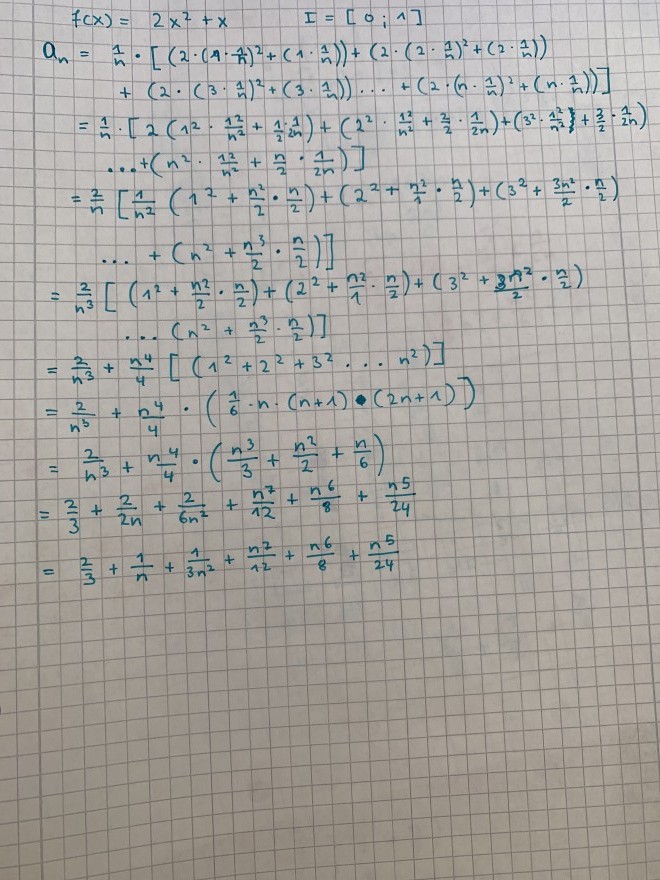 f(x) = 2x² + x I = [0; 1]
aₙ = 1/n · [(2·(1·1/n)² + (1·1/n)) + (2·(2·1/n)² + (2·1/n))
+ (2·(3·1/n)² + (3·1/n)) ... + (2·(n·1/n)² + (n·1/n))]
= 1/n · [2(1²·1²/n² + 1/2·1/2n) + (2²·1²/n² + 2/2·1/2n) + (3²·1²/n² + 3/2·1/2n)
...+(n²·1²/n² + n/2·1/2n)]
= 2/n [1/n² (1² + n²/2·n/2) + (2² + n²/1·n/2) + (3² + 3n²/2·n/2)
... + (n² + n³/2·n/2)]
= 2/n³ [(1² + n²/2·n/2) + (2² + n²/1·n/2) + (3² + 3n²/2·n/2)
... (n² + n³/2·n/2)]
= 2/n³ + n⁴/4 [(1² + 2² + 3² ... n²)]
= 2/n³ + n⁴/4 · (1/6·n·(n+1)·(2n+1))
= 2/n³ + n⁴/4 · (n³/3 + n²/2 + n/6)
= 2/3 + 2/2n + 2/6n² + n⁷/12 + n⁶/8 + n⁵/24
= 2/3 + 1/n + 1/3n² + n⁷/12 + n⁶/8 + n⁵/24